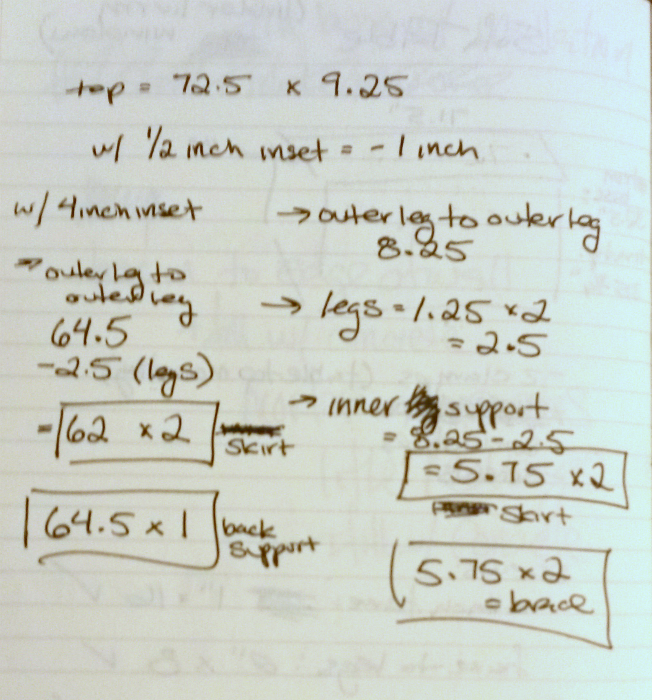 top = 72.5 x 9.25
w/ 1/2 inch inset = -1 inch
w/ 4 inch inset
→ outer leg to
outer leg
64.5
-2.5 (legs)
= 62 x 2 skirt
64.5 x 1 back
support
→ outer leg to outer leg
8.25
→ legs = 1.25 x 2
= 2.5
→ inner support
= 8.25 - 2.5
= 5.75 x 2
skirt
5.75 x 2
= brace